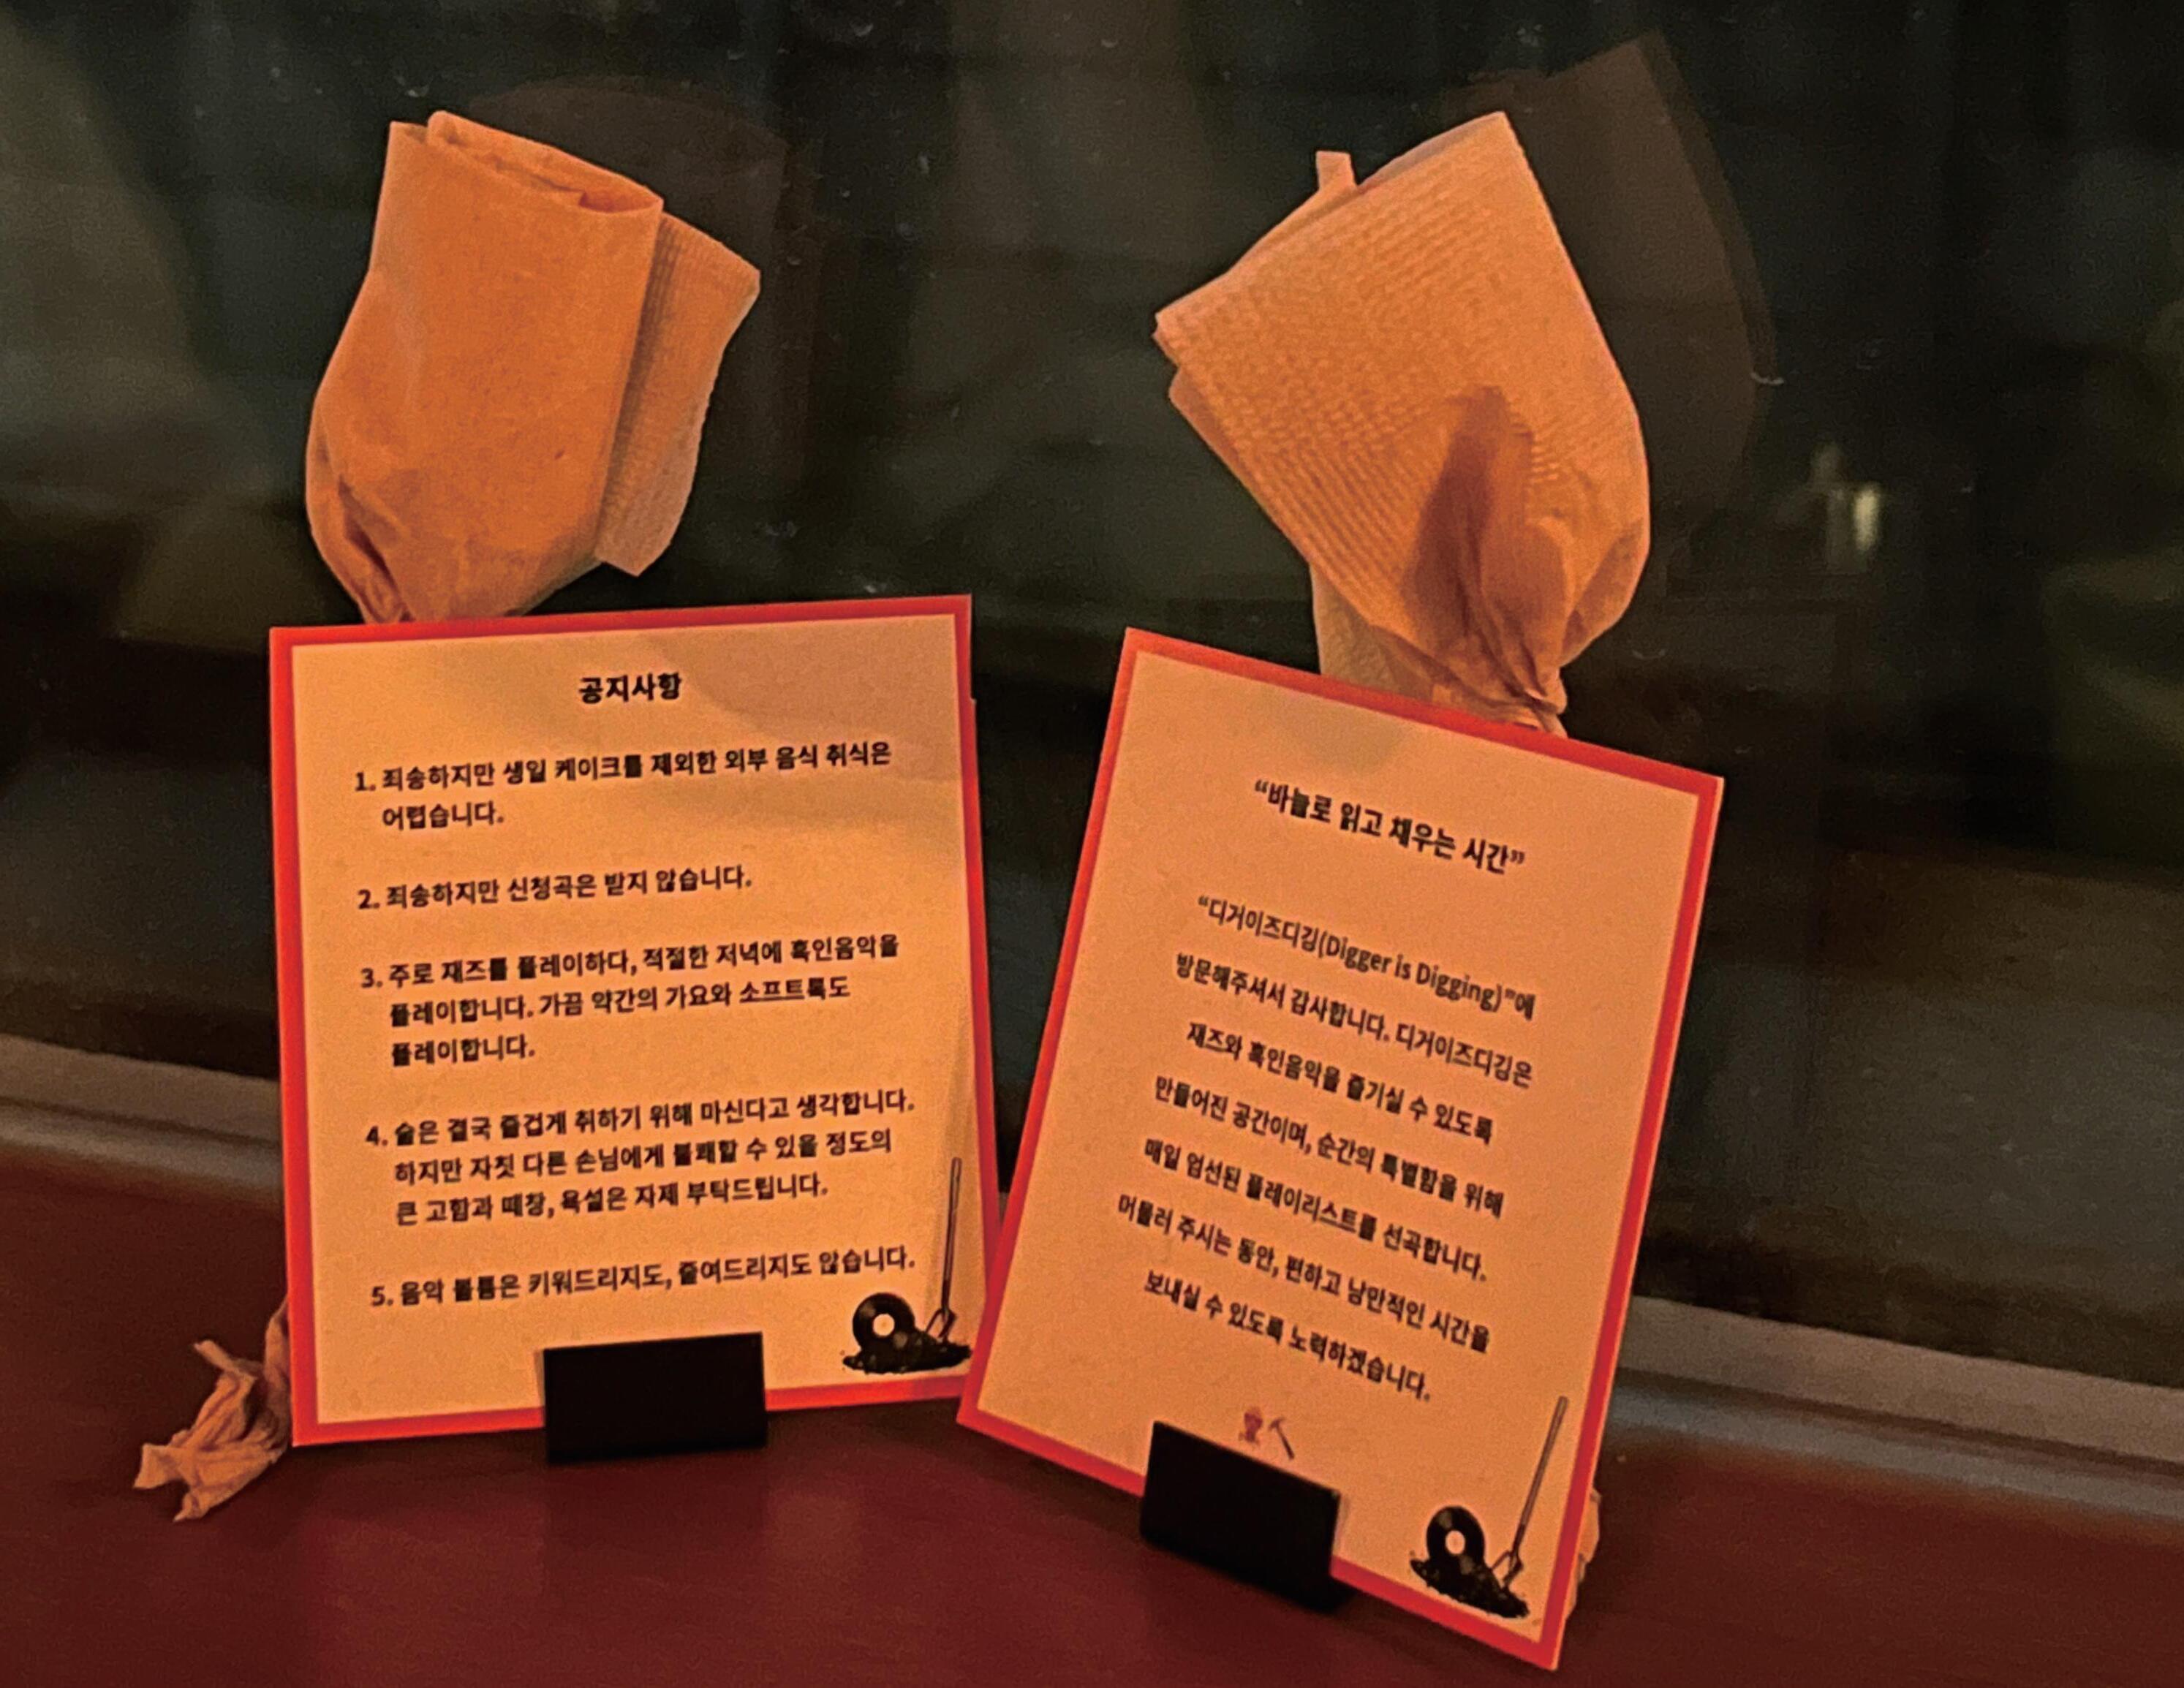 공지사항
1. 죄송하지만 생일 케이크를 제외한 외부 음식 취식은
어렵습니다.
2. 죄송하지만 신청곡은 받지 않습니다.
3. 주로 재즈를 플레이하다, 적절한 저녁에 흑인음악을
플레이합니다. 가끔 약간의 가요와 소프트록도
플레이합니다.
4. 술은 결국 즐겁게 취하기 위해 마신다고 생각합니다.
하지만 자칫 다른 손님에게 불쾌할 수 있을 정도의
큰 고함과 떼창, 욕설은 자제 부탁드립니다.
5. 음악 볼륨은 키워드리지도, 줄여드리지도 않습니다.
“바늘로 읽고 채우는 시간”
“디거이즈디깅(Digger is Digging)”에
방문해주셔서 감사합니다. 디거이즈디깅은
재즈와 흑인음악을 즐기실 수 있도록
만들어진 공간이며, 순간의 특별함을 위해
매일 엄선된 플레이리스트를 선곡합니다.
머물러 주시는 동안, 편하고 낭만적인 시간을
보내실 수 있도록 노력하겠습니다.